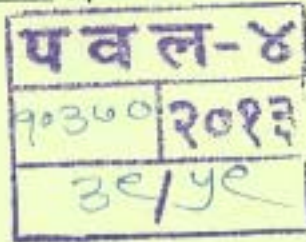 प व ल-४
१०३७० २०१३
३९/५९